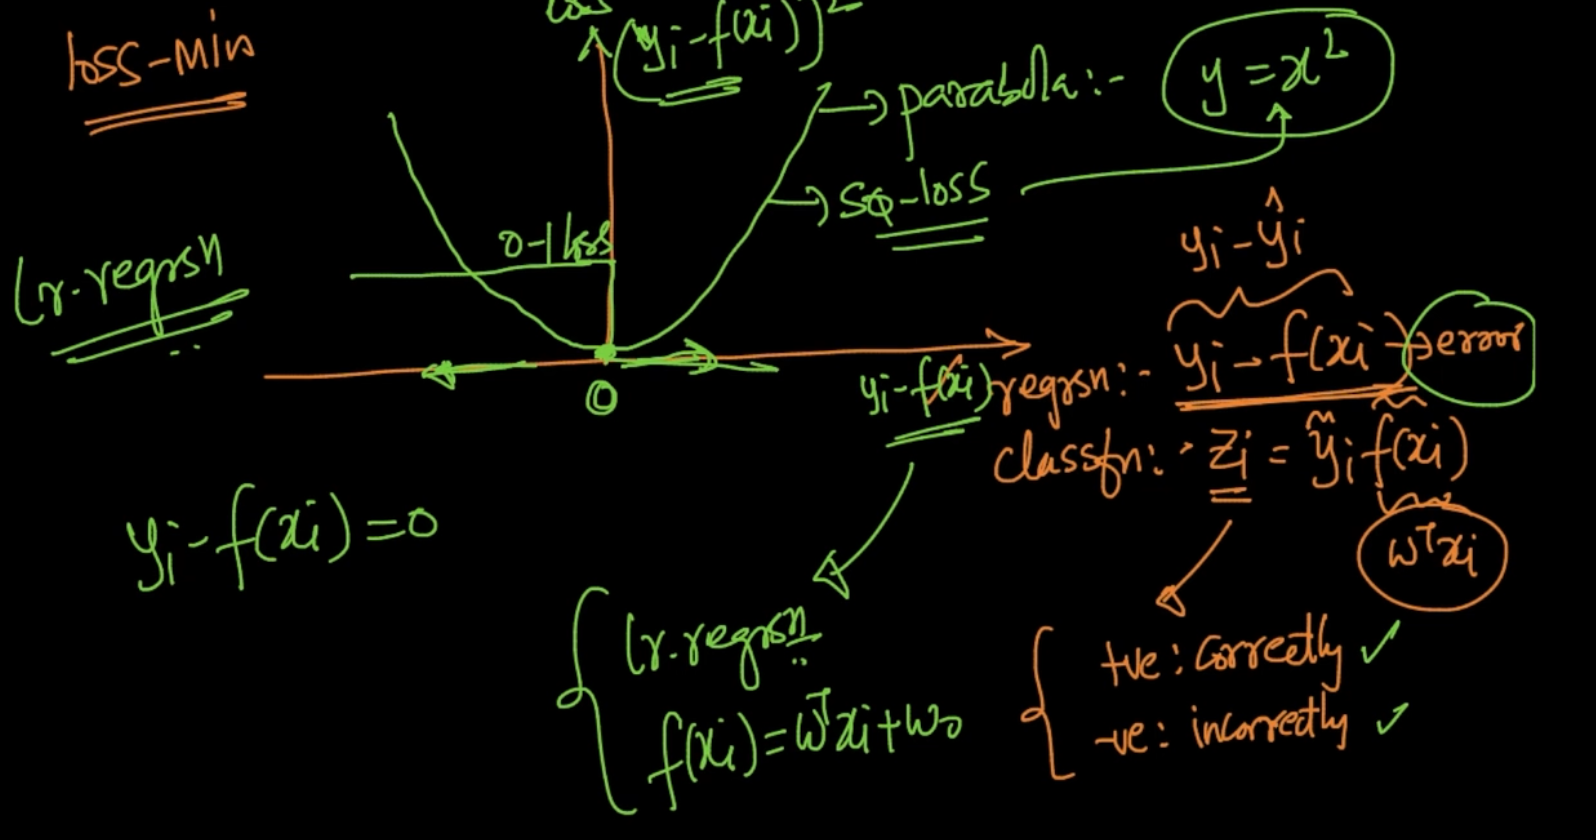 loss
loss-min
(yi-f(xi))²
parabola:-
y=x²
sq-loss
0-1 loss
lr.regrsn
yi-ŷi
0
yi-f(xi)
regrsn:- yi-f(xi)→error
classfn:- zi = yi f(xi)
wᵀxi
yi-f(xi)=0
lr.regrsn
f(xi)=wᵀxi+w₀
+ve: correctly ✓
-ve: incorrectly ✓